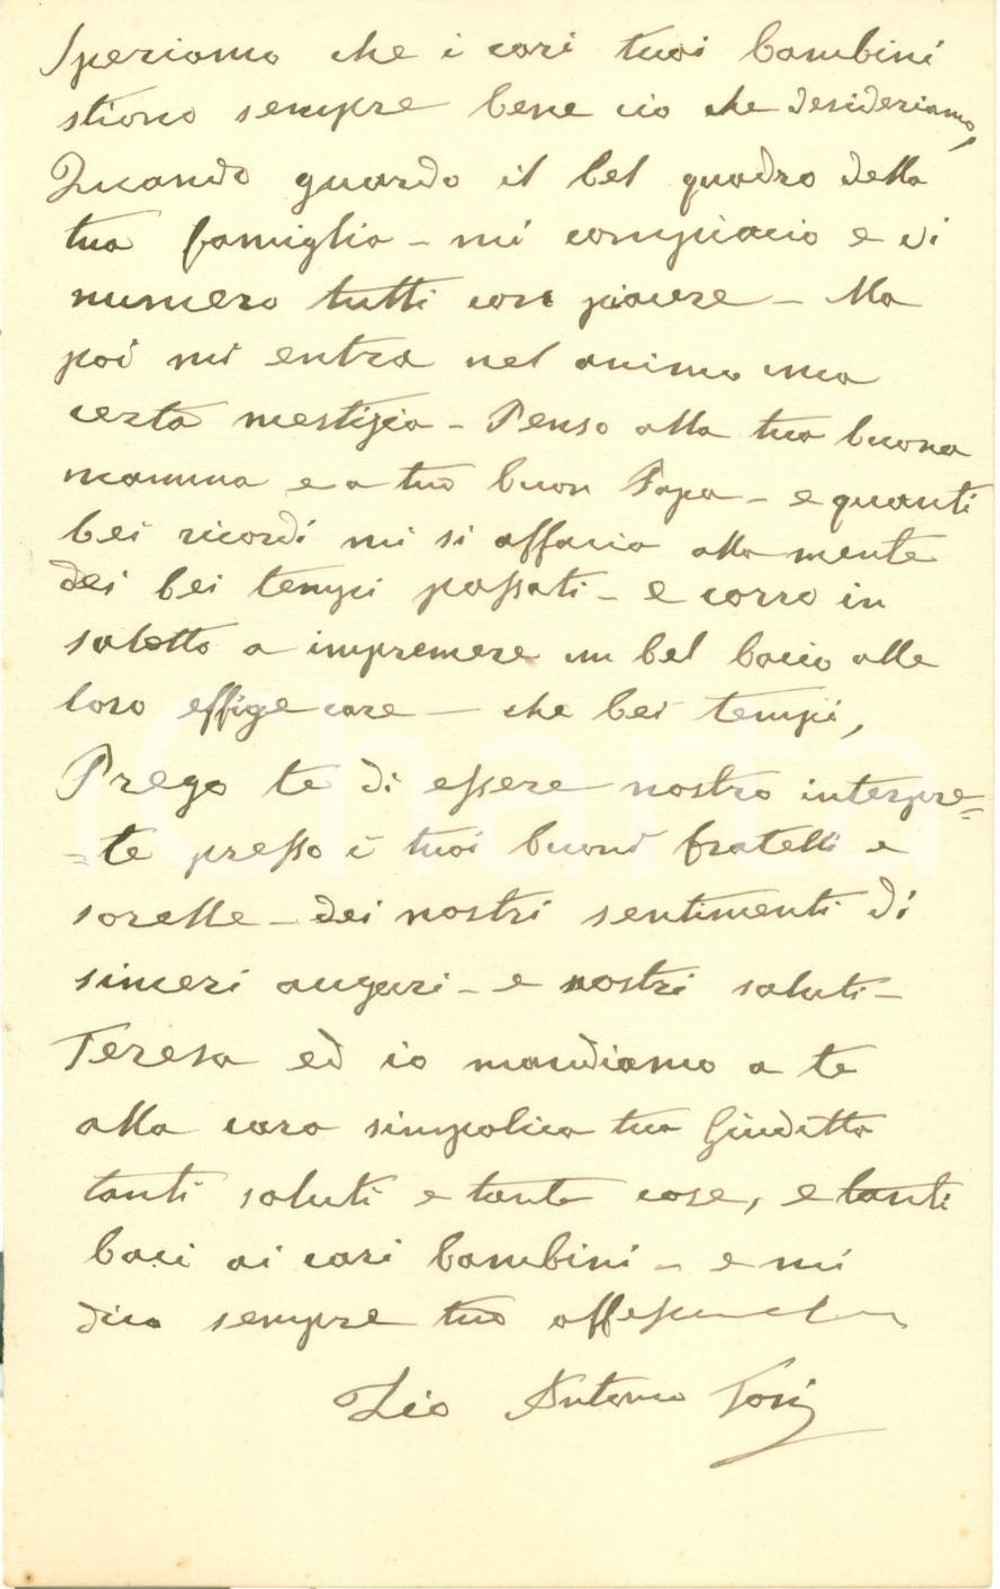 Speriamo che i cari tuoi bambini
stiano sempre bene cio che desideriamo,
Quando guardo il bel quadro della
tua famiglia - mi compiacio e vi
numero tutti con piacere - Ma
poi mi entra nel animo una
certa mestizia - Penso alla tua buona
mamma e a tuo buon Papa - e quanti
bei ricordi mi si affacia alla mente
dei bei tempi passati - e corro in
salotto a impremere un bel bacio alle
loro effige care - che bei tempi,
Prego te di essere nostro interpre=
=te presso i tuoi buoni fratelli e
sorelle - dei nostri sentimenti di
sinceri auguri - e nostri saluti -
Teresa ed io mandiamo a te
alla cara simpatica tua Giuditta
tanti saluti e tante cose, e tanti
baci ai cari bambini - e mi
dico sempre tuo
Zio Antonio Tosi